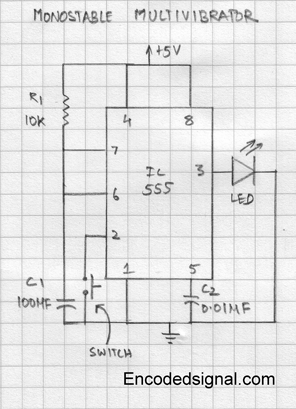 MONOSTABLE MULTIVIBRATOR
+5V
R1
10K
4
8
7
IC
555
3
6
LED
2
1
5
C1
100MF
C2
0.01MF
SWITCH
Encodedsignal.com